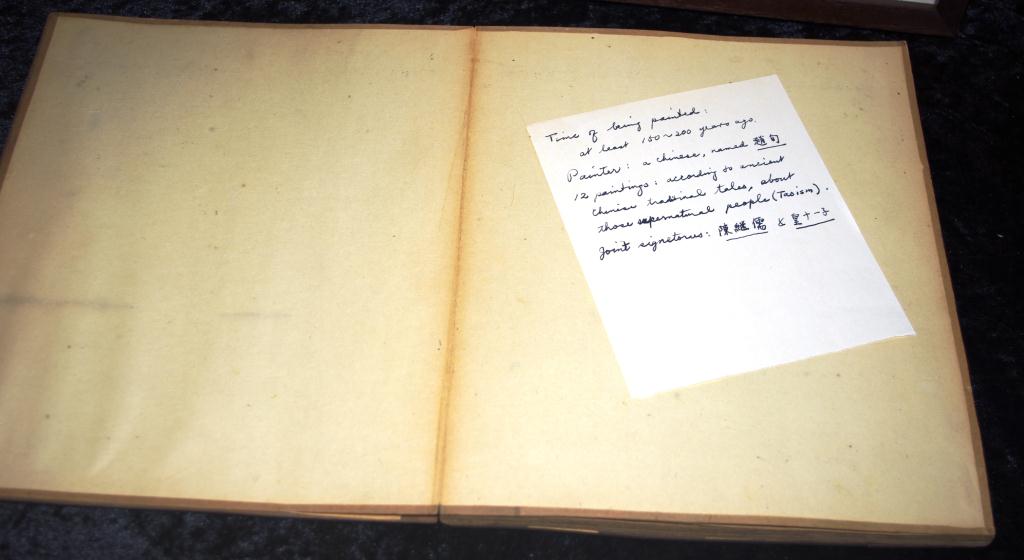 Time of being painted:
at least 150~200 years ago.
Painter: a chinese, named 趙旬
12 paintings: according to ancient
chinese traditinal tales, about
those supernatural people (Taoism).
Joint signetories: 陳繼儒 & 皇十一子